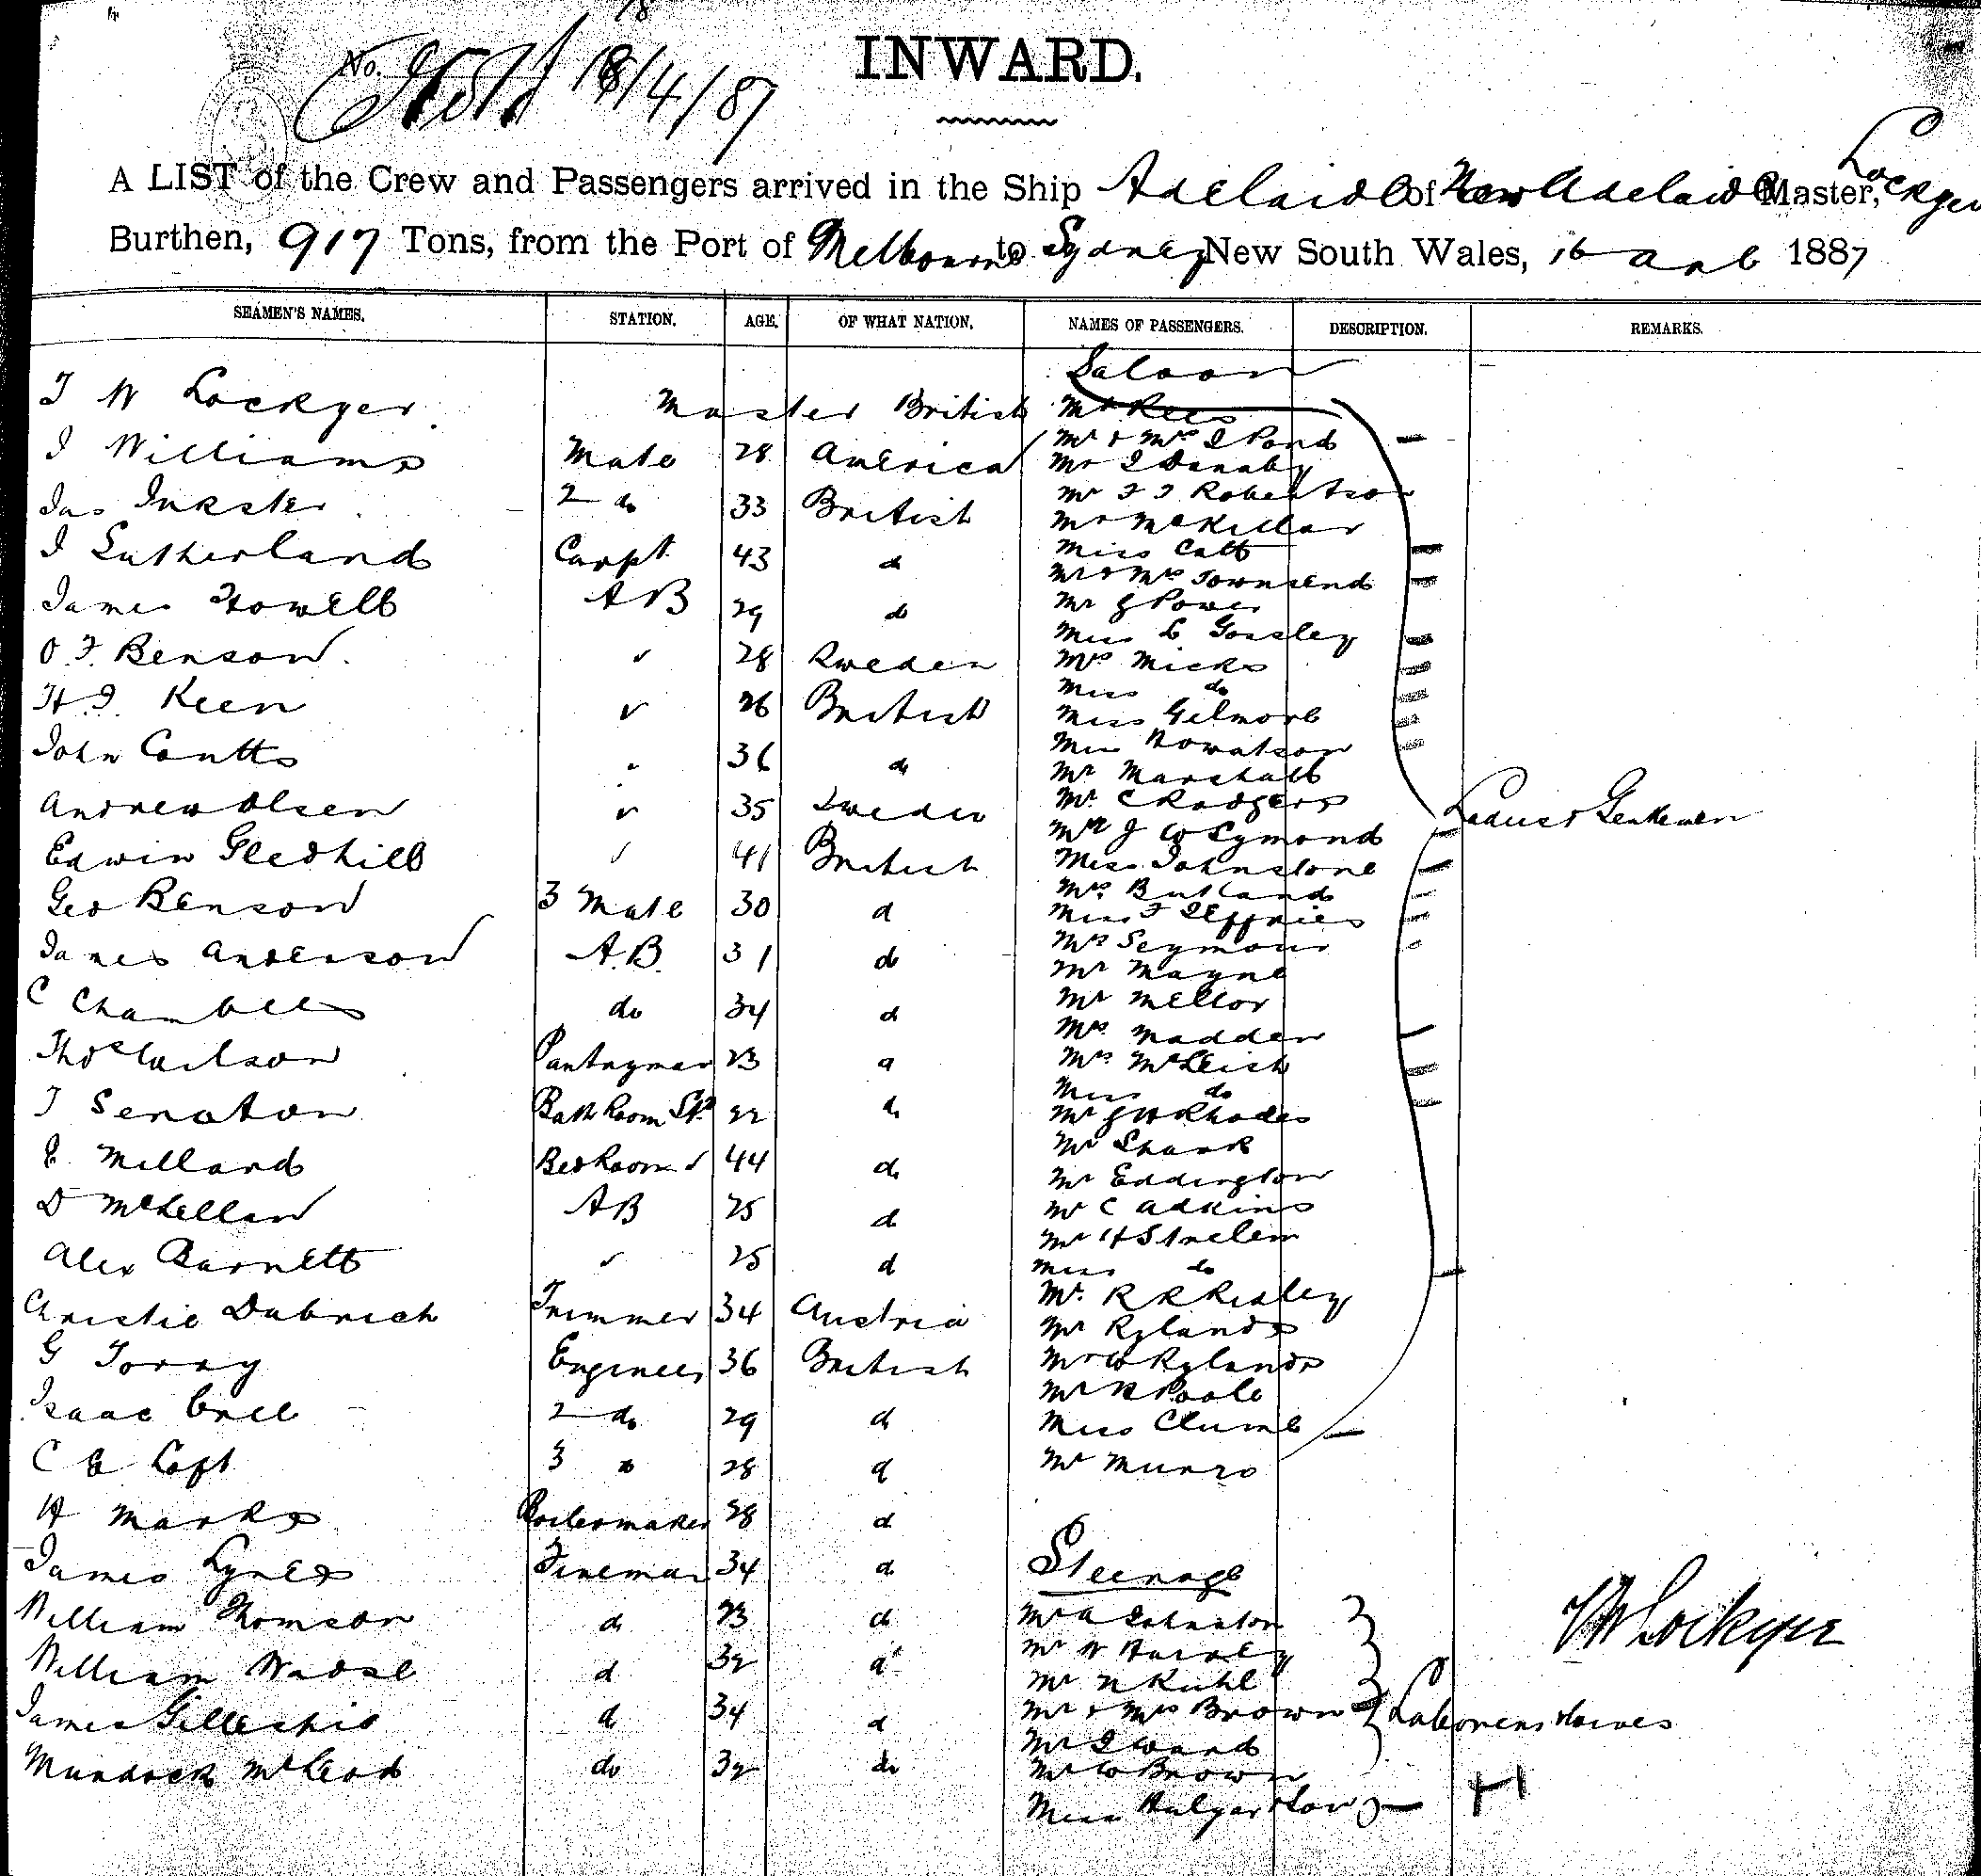 No. 18/4/87
INWARD.
A LIST of the Crew and Passengers arrived in the Ship Adelaide of Adelaide Master, Lockyer
Burthen, 917 Tons, from the Port of Melbourne to Sydney New South Wales, 16 1887
SEAMEN'S NAMES. STATION. AGE. OF WHAT NATION. NAMES OF PASSENGERS. DESCRIPTION. REMARKS.
Saloon
W Lockyer Master British Mr Rees
J Williams Mate 28 America Mr & Mrs J Pond
Mr J Danaby
Jas Inkster 2 do 33 British Mr Robertson
Mr McKillar
J Sutherland Carpt. 43 d Miss Catt
Mr & Mrs Townsend
James Howell AB 29 do Mr G Power
Miss Gorsley
O.F. Benson 28 Sweden Mrs Micks
Miss do
H.J. Keen 26 British Miss Gilmore
Miss Howatson
John Coutts 36 do Mr Marshall
Andrew Olsen 35 Sweden Mr. C Rodgers
Ladies & Gentlemen
Mr J W Symond
Edwin Gledhill 41 British Miss Johnstone
Mrs Butland
Geo Benson 3 Mate 30 d Miss F Jeffries
James Anderson A.B. 31 do Mrs Seymour
Mr Mayne
C Chambers do 34 d Mr Mellor
Mrs Madden
Thos Wilson Pantryman 23 d Mrs McLeish
Miss do
J Senoton Bath Room St 22 do Mr G H Rhodes
Mr Shark
E Millard Bed Room 44 do Mr Eddington
D McLellan AB 25 d Mr C Adkins
Mr H
Alex Barnett 25 d Miss do
Christie Dubrich Trimmer 34 Austria Mr. R R Risley
Mr Rylands
G Torry Engineer 36 British Mr W Rylands
Mr R Poole
Isaac 2 do 29 d Miss Clumb
C E Loft 3 do 28 d Mr Munro
H Marks Boilermaker 28 d
James Lynes Fireman 34 d Steerage
William Thomson d 23 d Mr A Johnston
Mr W Harvey
William d 32 d Mr N Kuhl
James Gillespie d 34 d Mr & Mrs Brown Labourers
Mr J Ward
Murdock McLeod do 32 do Mr W Brown
Miss
W Lockyer